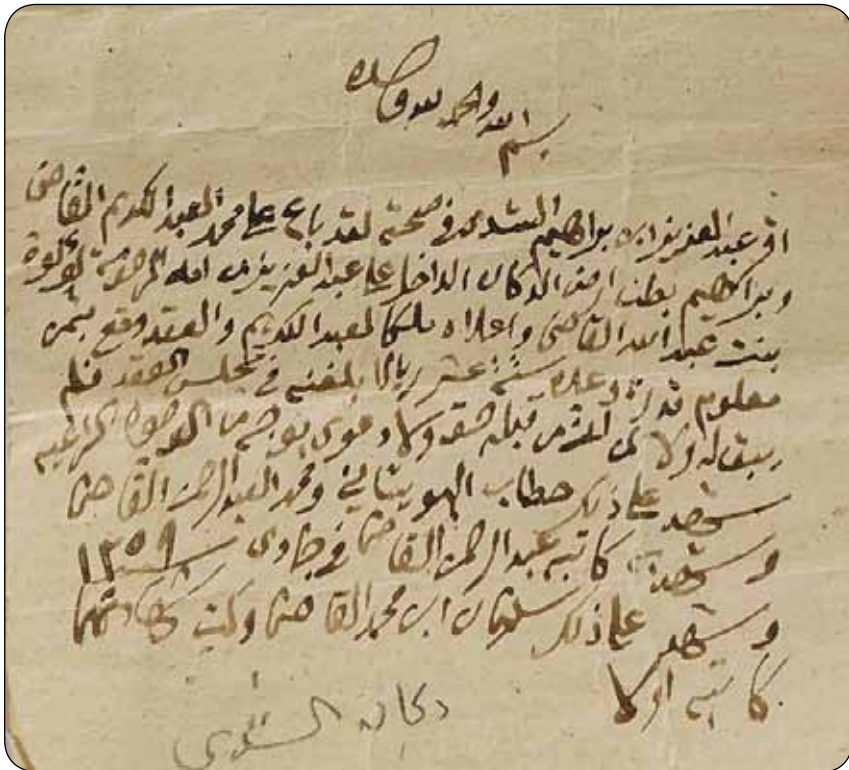 بسم الله والحمد لله وحده
اقر عبد العزيز ابن براهيم في صحته لقد باع على محمد العبد الكريم القاضي
وبراهيم بطن ارض الدكان الداخل على عبد العزيز من امه المرحومة لؤلؤة
بنت عبد الله القاضي واعلاه ملكا لعبد الكريم والعقد وقع بثمن
معلوم قدره وعدده ستة عشر ريالا بلغنه في مجلس العقد فلم
يبقى له ولا على المشتري قبله حق ولا دعوى بوجه من الوجوه الشرعيه
شهد على ذلك حطاب ومحمد العبد الرحمن القاضي
وشهد به كاتبه عبد الرحمن القاضي في جمادى سنة ١٣٥٩
وشهد على ذلك سليمان ابن محمد القاضي وكتب شهادتهما
كاتبه اولا
دكان